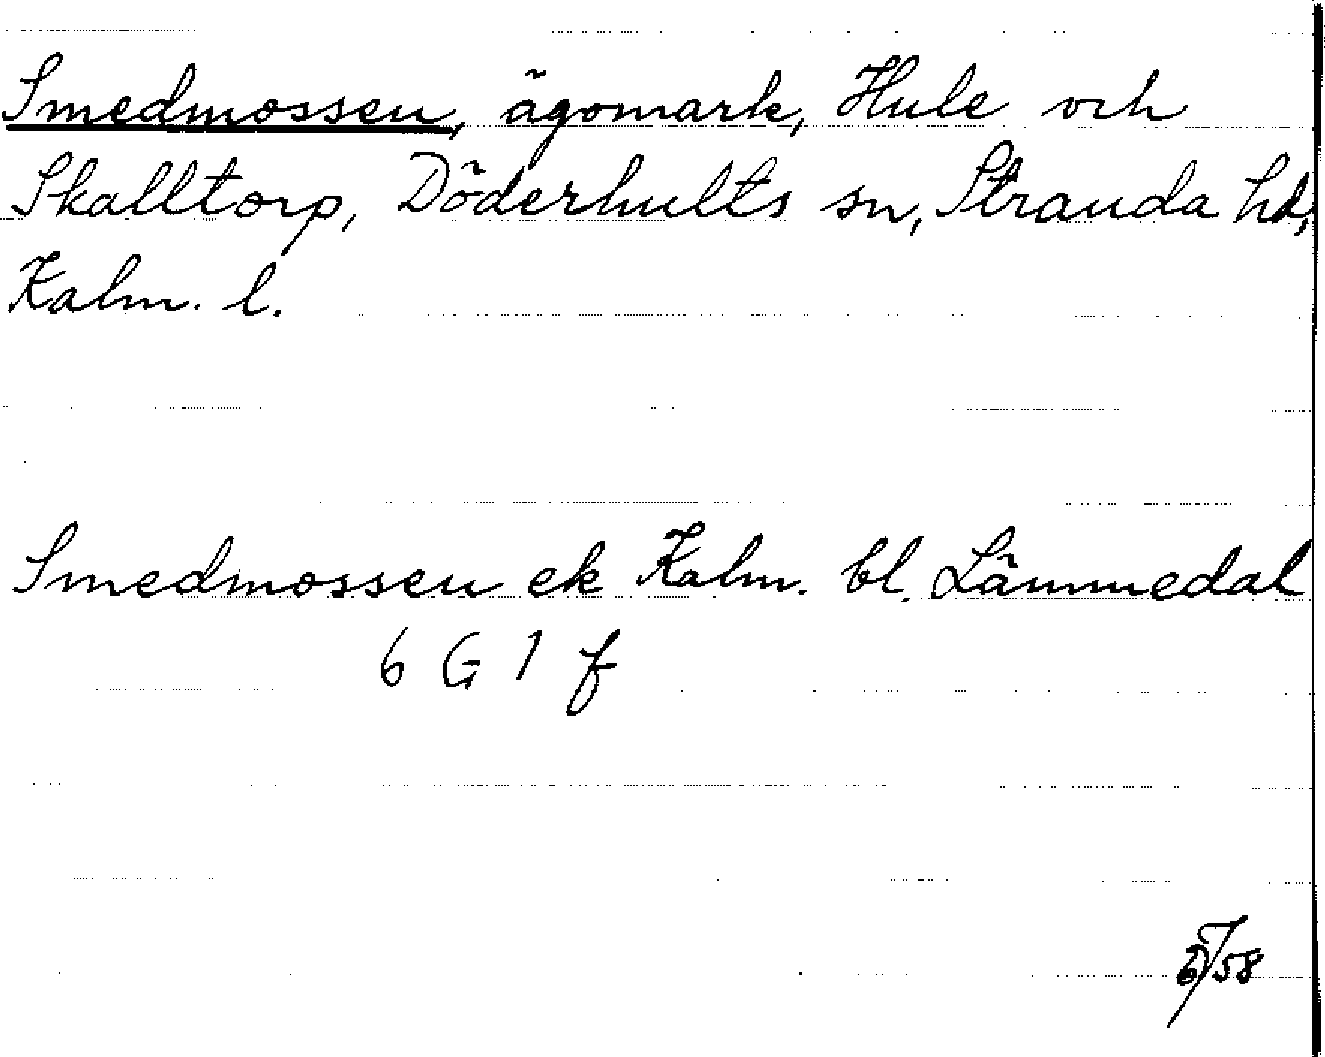 Smedmossen, ägomark, Hule och
Skalltorp, Döderhults sn, Stranda hd,
Kalm. l.
Smedmossen ek Kalm. bl. Lämmedal
6 G 1 f
/58